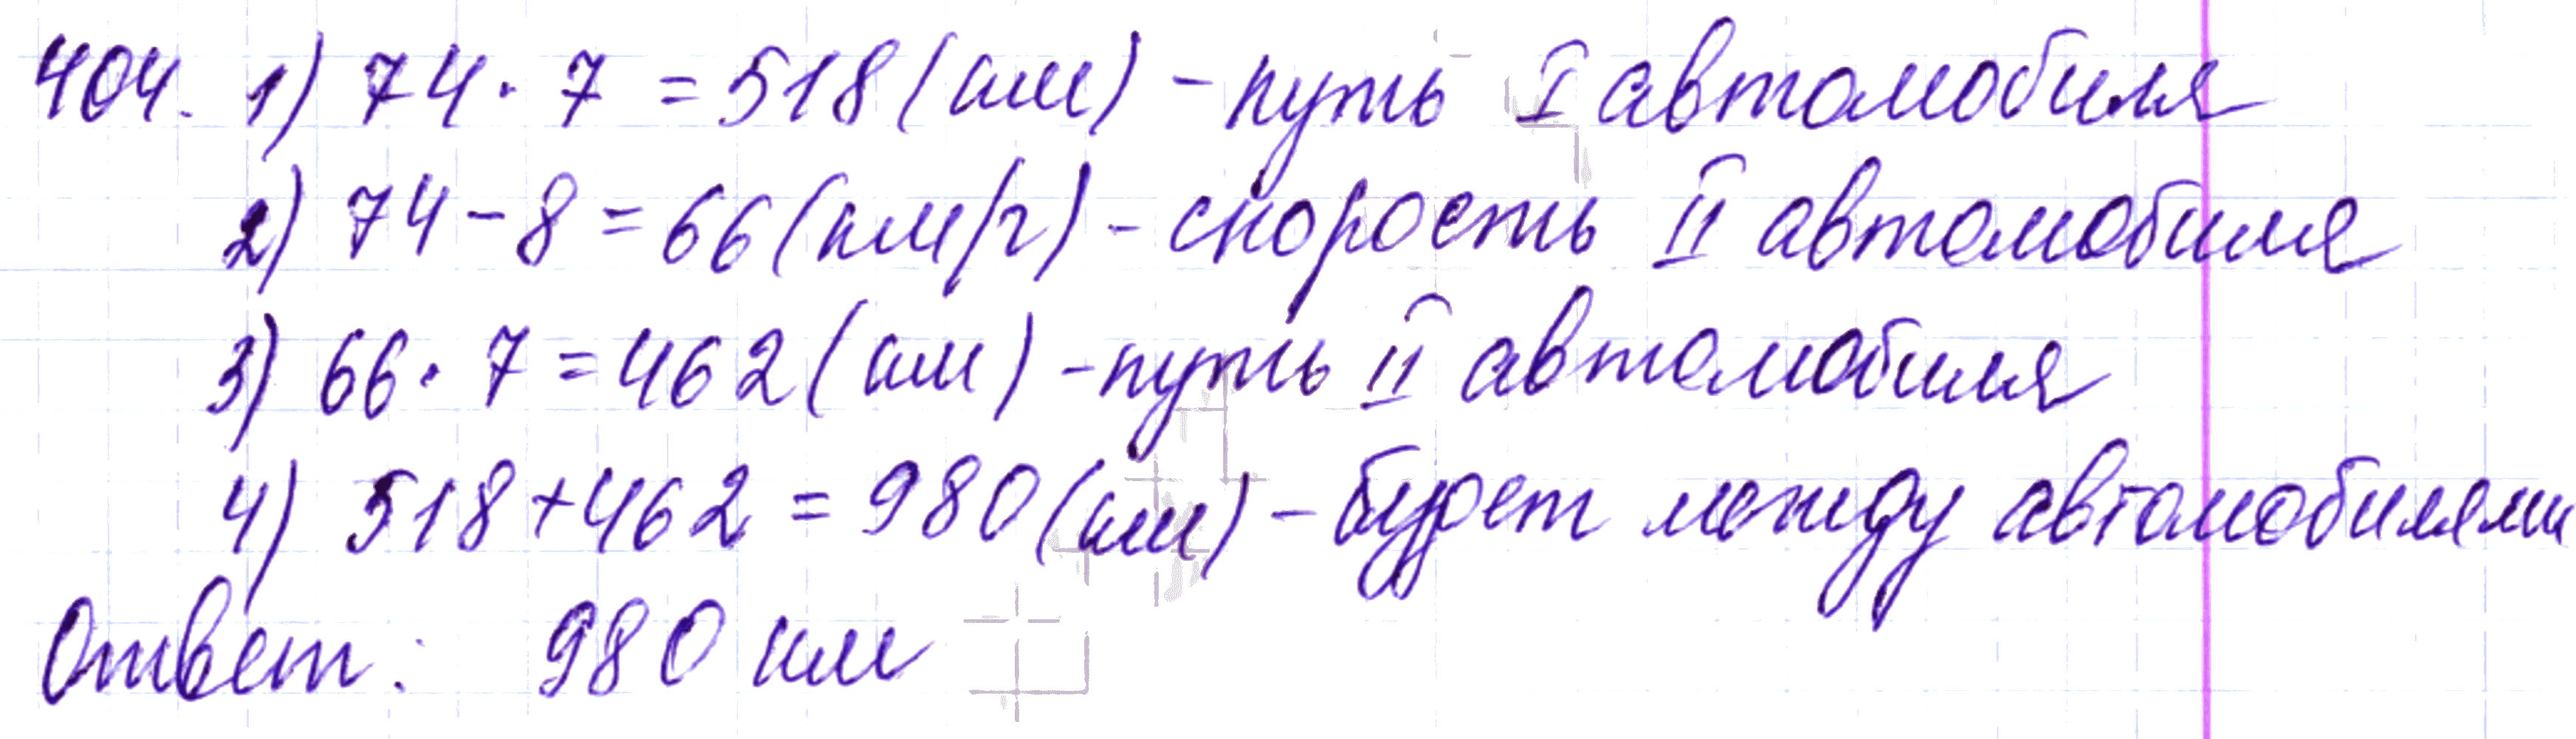 404. 1) 74 · 7 = 518 (км) - путь I автомобиля
2) 74 - 8 = 66 (км/ч) - скорость II автомобиля
3) 66 · 7 = 462 (км) - путь II автомобиля
4) 518 + 462 = 980 (км) - будет между автомобилями
Ответ: 980 км